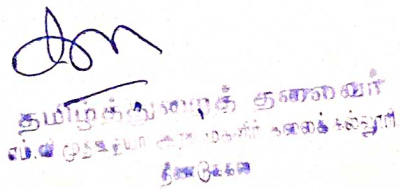 தமிழ்த்துறைத் தலைவர்
எம்.வி முத்தையா அரசு மகளிர் கலைக் கல்லூரி
திண்டுக்கல்